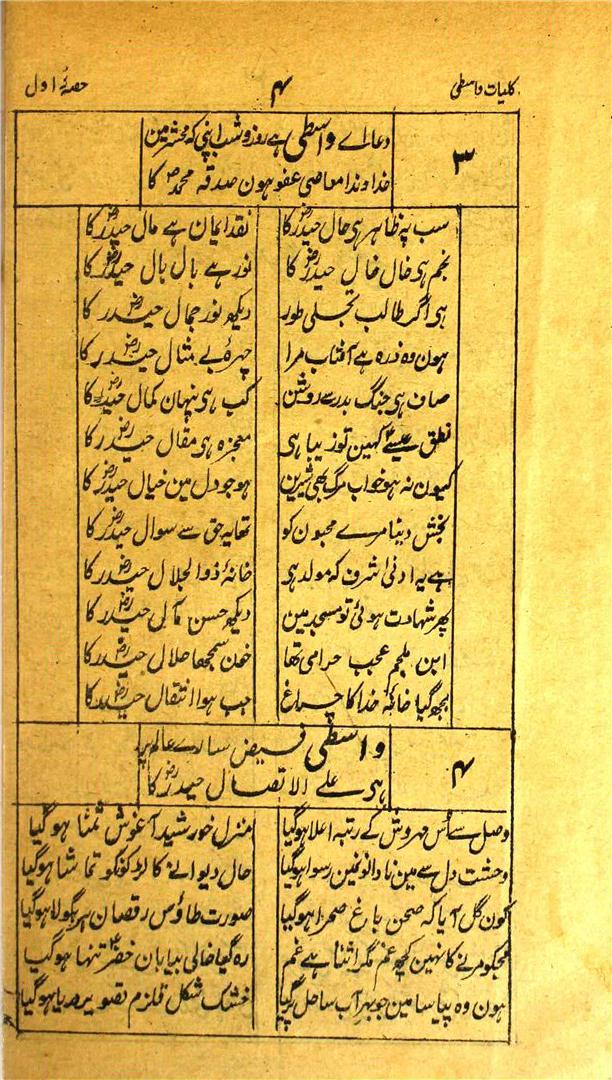 کلیات واسطی ۴ حصۂ اول
۳
دعا اے واسطی ہے روز و شب اپنی کہ محشر مین
خداوندا معاصی عفو ہون صدقہ محمدؐ کا
سب پہ ظاہر ہی حال حیدرؓ کا نقد ایمان ہے مال حیدرؓ کا
نجم ہی خال خال حیدرؓ کا نور ہے بال بال حیدرؓ کا
ہی اگر طالب تجلی طور دیکھ نور جمال حیدرؓ کا
ہون وہ ذرہ ہے آفتاب مرا چہرۂ بے مثال حیدرؓ کا
صاف ہی جنگ بدر سے روشن کب ہی پنہان کمال حیدرؓ کا
نطق عیسےٰ کہین تو زیبا ہی معجزہ ہی مقال حیدرؓ کا
کیون نہ ہو خواب مرگ بھی شیرین ہو جو دل مین خیال حیدرؓ کا
بخش دینا مرے محبون کو تھا یہ حق سے سوال حیدرؓ کا
ہے یہ ادنیٰ شرف کہ مولد ہی خانۂ ذوالجلال حیدرؓ کا
پھر شہادت ہوئی تو مسجد مین دیکھ حسن مآل حیدرؓ کا
ابن ملجم عجب حرامی تھا خون سمجھا حلال حیدرؓ کا
بجھ گیا خانۂ خدا کا چراغ جب ہوا انتقال حیدرؓ کا
۴
واسطی فیض سارے عالم پر
ہی علے الاتصال حیدرؓ کا
وصل سے اُس مہروش کے رتبہ اعلا ہوگیا منزل خورشید آغوش تمنا ہوگیا
وحشت دل سے مین نادانونمین رسوا ہوگیا حال دیوانے کا لڑکونکو تماشا ہوگیا
کون گل آیا کہ صحن باغ صحرا ہوگیا صورت طاؤس رقصان ہر بگولا ہوگیا
مجکو مرنے کا نہین کچھ غم مگر اتنا ہے غم رہ گیا خالی بیابان خضرؑ تنہا ہوگیا
ہون وہ پیاسا مین جو بہر آب ساحل پر گیا خشک شکل قلزم تصویر دریا ہوگیا